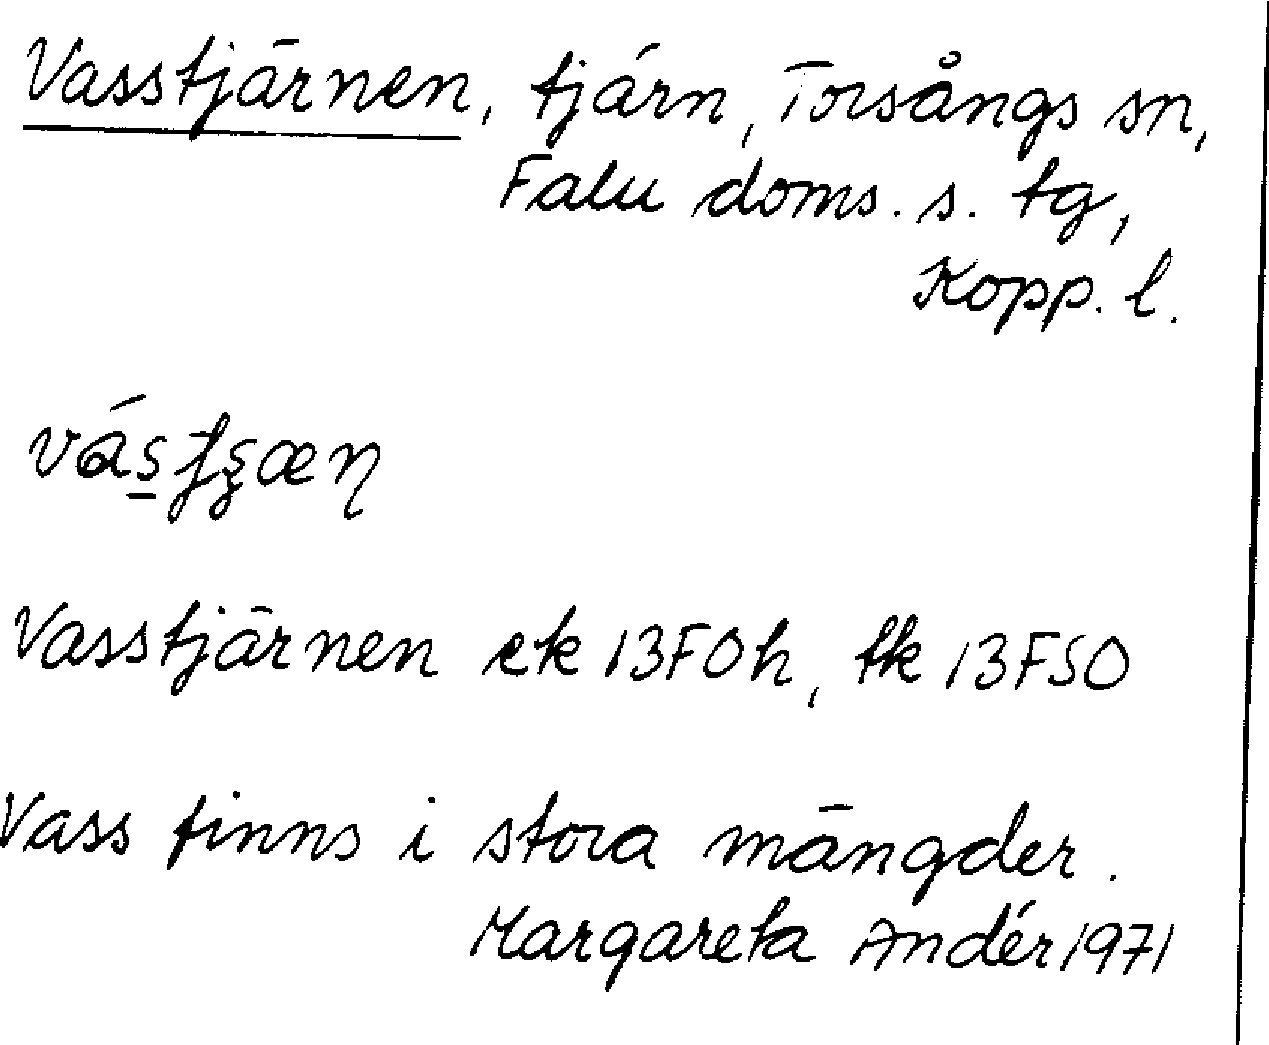 Vasstjärnen, tjärn, Torsångs sn,
Falu doms. s. tg,
Kopp. l.
Vasstjärnen ek 13F0h, tk 13FSO
Vass finns i stora mängder.
Margareta Andér 1971